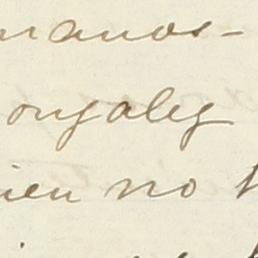 manos-
onzalez
ien no t